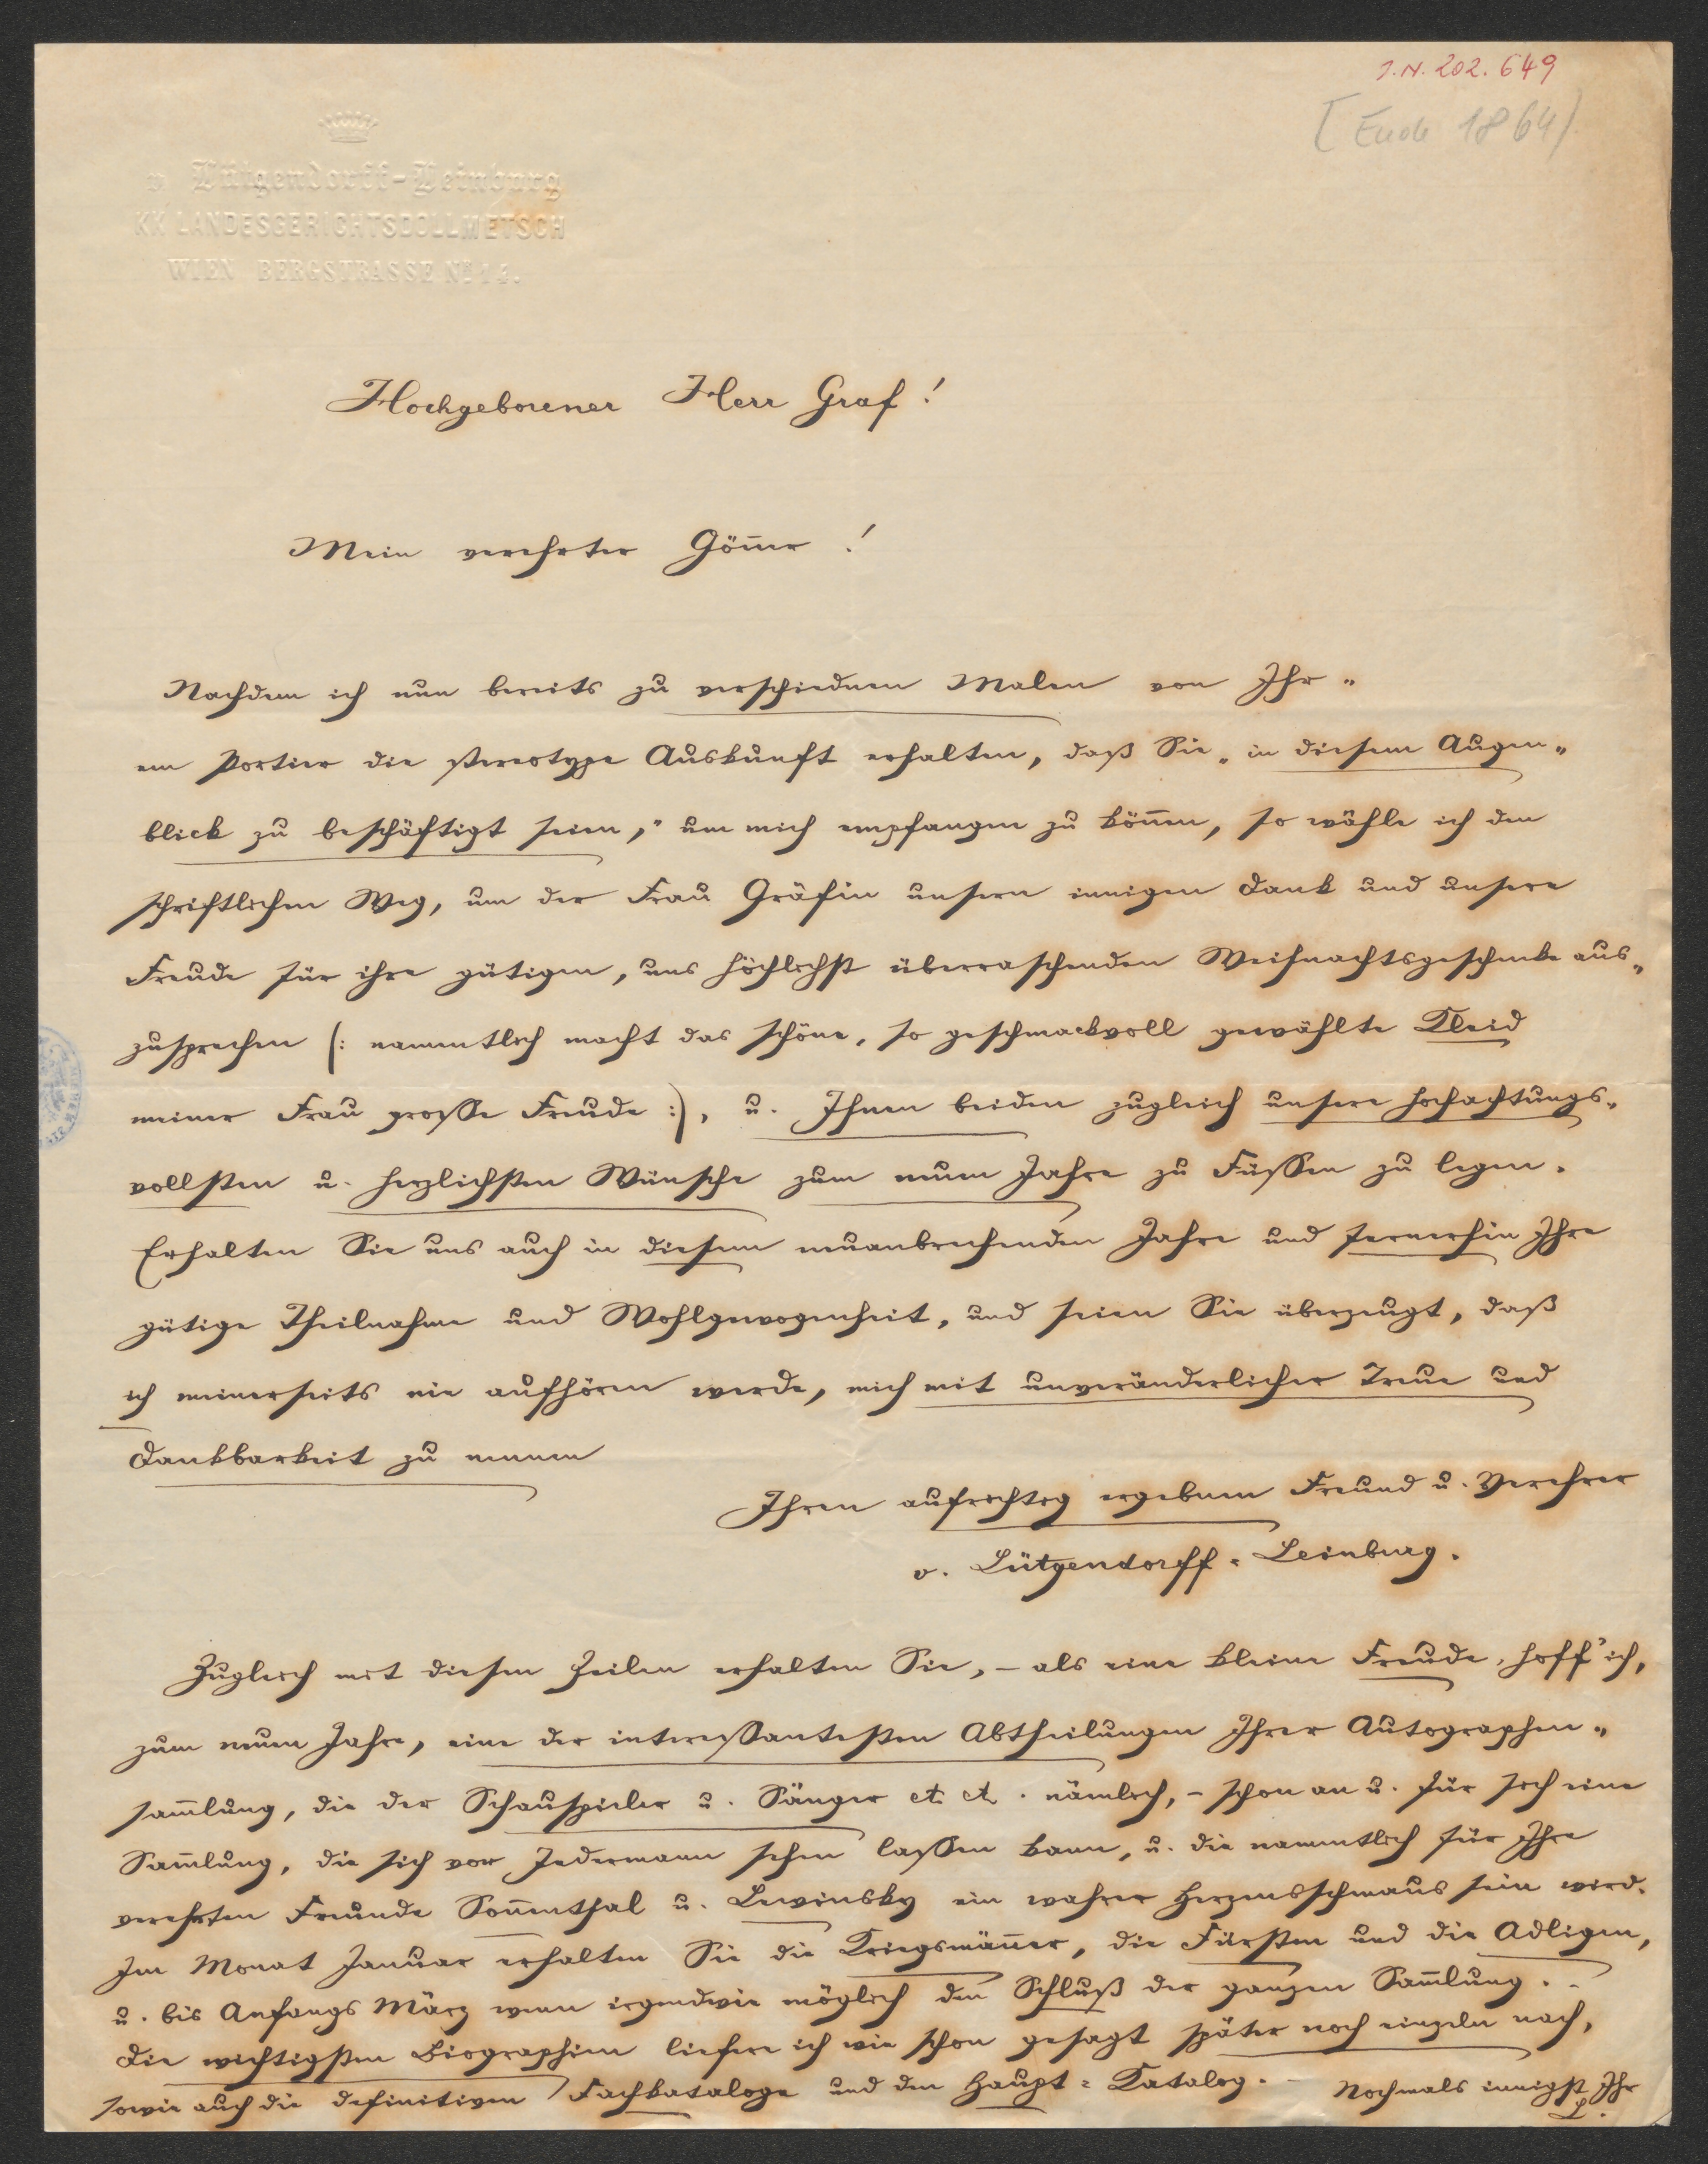 J.N. 202.649
[Ende 1864]
v Lütgendorff-Leinburg
KK LANDESGERICHTSDOLLMETSCH
WIEN BERGSTRASSE No 14.
Hochgeborener Herr Graf!
Mein verehrter Gön̄er!
Nachdem ich nun bereits zu verschiednen Malen von Ihr„
em Portier die stereotype Auskunft erhalten, daß Sie „in diesem Augen„
blick zu beschäftigt seien," um mich empfangen zu kön̄en, so wähle ich den
schriftlichen Weg, um der Frau Gräfin unsern innigen Dank und unsere
Freude für ihre gütigen, uns höchlichst überraschenden Weihnachtsgeschenke aus„
zusprechen (: namentlich macht das schöne, so geschmackvoll gewählte Kleid
meiner Frau große Freude :), u. Ihnen beiden zugleich unsere hochachtungs„
vollsten u. herzlichsten Wünsche zum neuen Jahre zu Füßen zu legen.
Erhalten Sie uns auch in diesem neuanbrechenden Jahre und fernerhin Ihre
gütige Theilnahme und Wohlgewogenheit, und seien Sie überzeugt, daß
ich meinerseits nie aufhören werde, mich mit unveränderlicher Treue und
Dankbarkeit zu nennen
Ihren aufrichtig ergebnen Freund u. Verehrer
v. Lütgendorff-Leinburg.
Zugleich mit diesen Zeilen erhalten Sie, – als eine kleine Freude, hoff' ich,
zum neuen Jahre, eine der interessantesten Abtheilungen Ihrer Autographen„
sam̄lung, die der Schauspieler u. Sänger etc etc. nämlich, – schon an u. für sich eine
Sam̄lung, die sich vor Jedermann sehen laßen kann, u. die namentlich für Ihre
verehrten Freunde Son̄enthal u. Lewinsky ein wahrer Herzensschmaus sein wird.
Im Monat Januar erhalten Sie die Kriegsmän̄er, die Fürsten und die Adligen,
u. bis Anfangs März wenn irgendwie möglich den Schluß der ganzen Sam̄lung. –
Die wichtigsten Biographien liefere ich wie schon gesagt später noch einzeln nach,
sowie auch die definitiven Fachkataloge und den Haupt-Katalog. – Nochmals innigst Ihr
L.